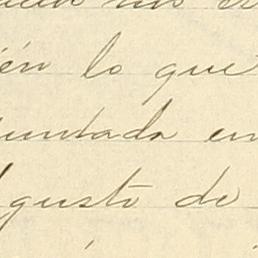 én lo que
untada en
gusto de